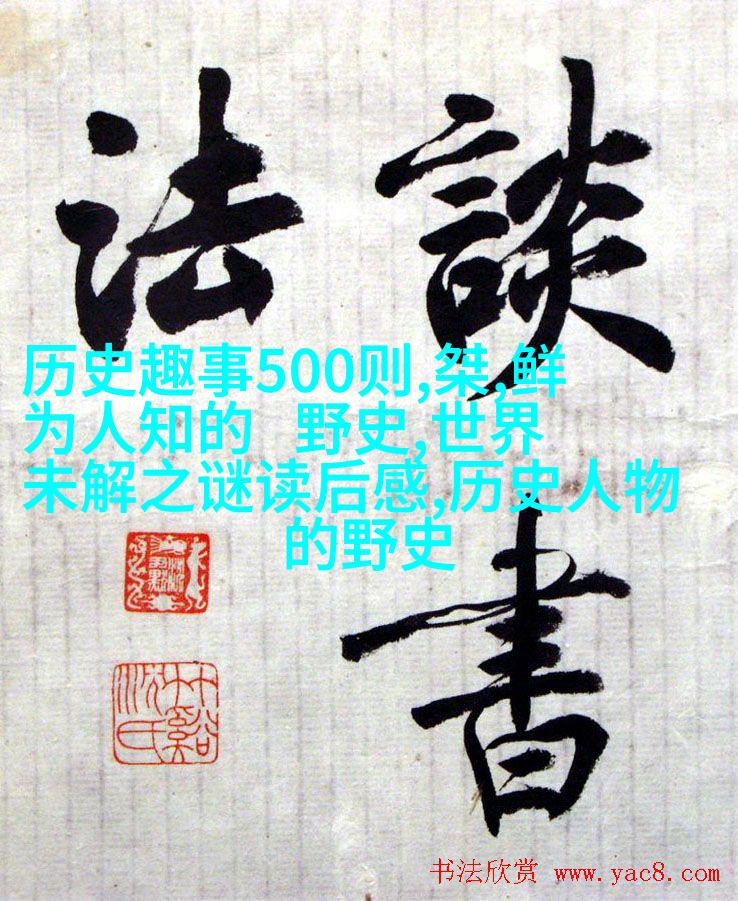 談書
法
历史趣事500则,桀,鲜
为人知的 野史,世界
未解之谜读后感,历史人物
的野史
书法欣赏 www.yac8.com